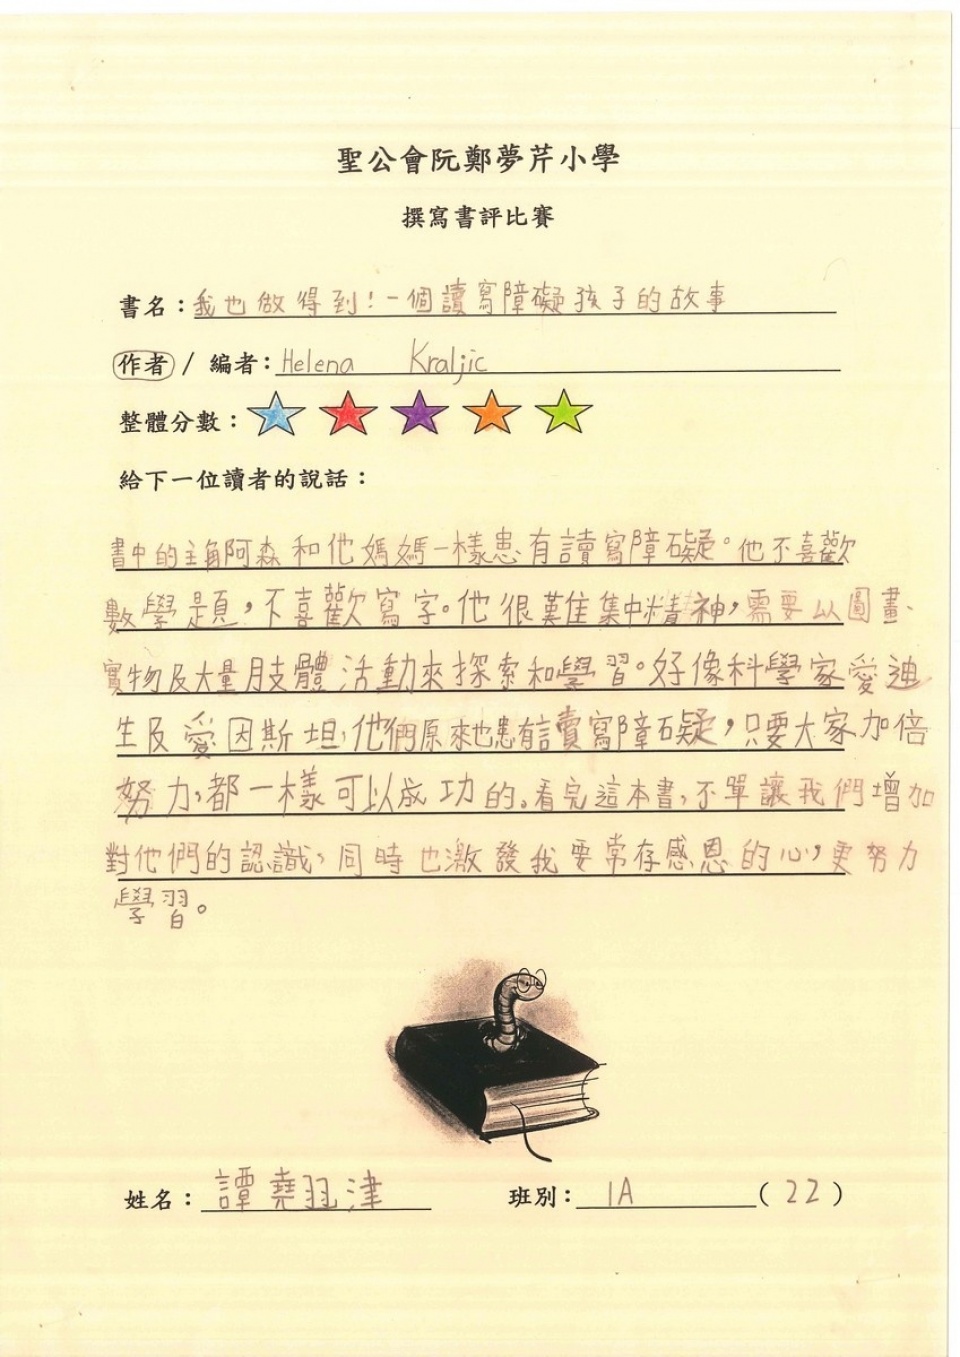 聖公會阮鄭夢芹小學
撰寫書評比賽
書名：我也做得到！一個讀寫障礙孩子的故事
作者 / 編者：Helena Kraljic
整體分數：
給下一位讀者的說話：
書中的主角阿森和他媽媽一樣患有讀寫障礙。他不喜歡
數學題，不喜歡寫字。他很難集中精神，需要以圖畫、
實物及大量肢體活動來探索和學習。好像科學家愛迪
生及愛因斯坦，他們原來也患有讀寫障礙，只要大家加倍
努力，都一樣可以成功的。看完這本書，不單讓我們增加
對他們的認識，同時也激發我要常存感恩的心，更努力
學習。
姓名：譚堯津
班別：1A（22）